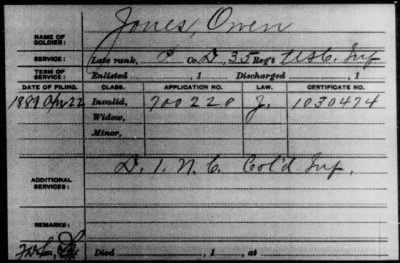 Jones, Owen
NAME OF SOLDIER:
SERVICE: Late rank, P Co. D, 35 Reg't U.S.C. Inf
TERM OF SERVICE: Enlisted , 1 Discharged , 1
DATE OF FILING. CLASS. APPLICATION NO. LAW. CERTIFICATE NO.
1889 Apr 22 Invalid, 700228 J. 1030474
Widow,
Minor,
D. 1. N. C. Col'd Inf.
ADDITIONAL SERVICES:
REMARKS:
Died , 1 , at